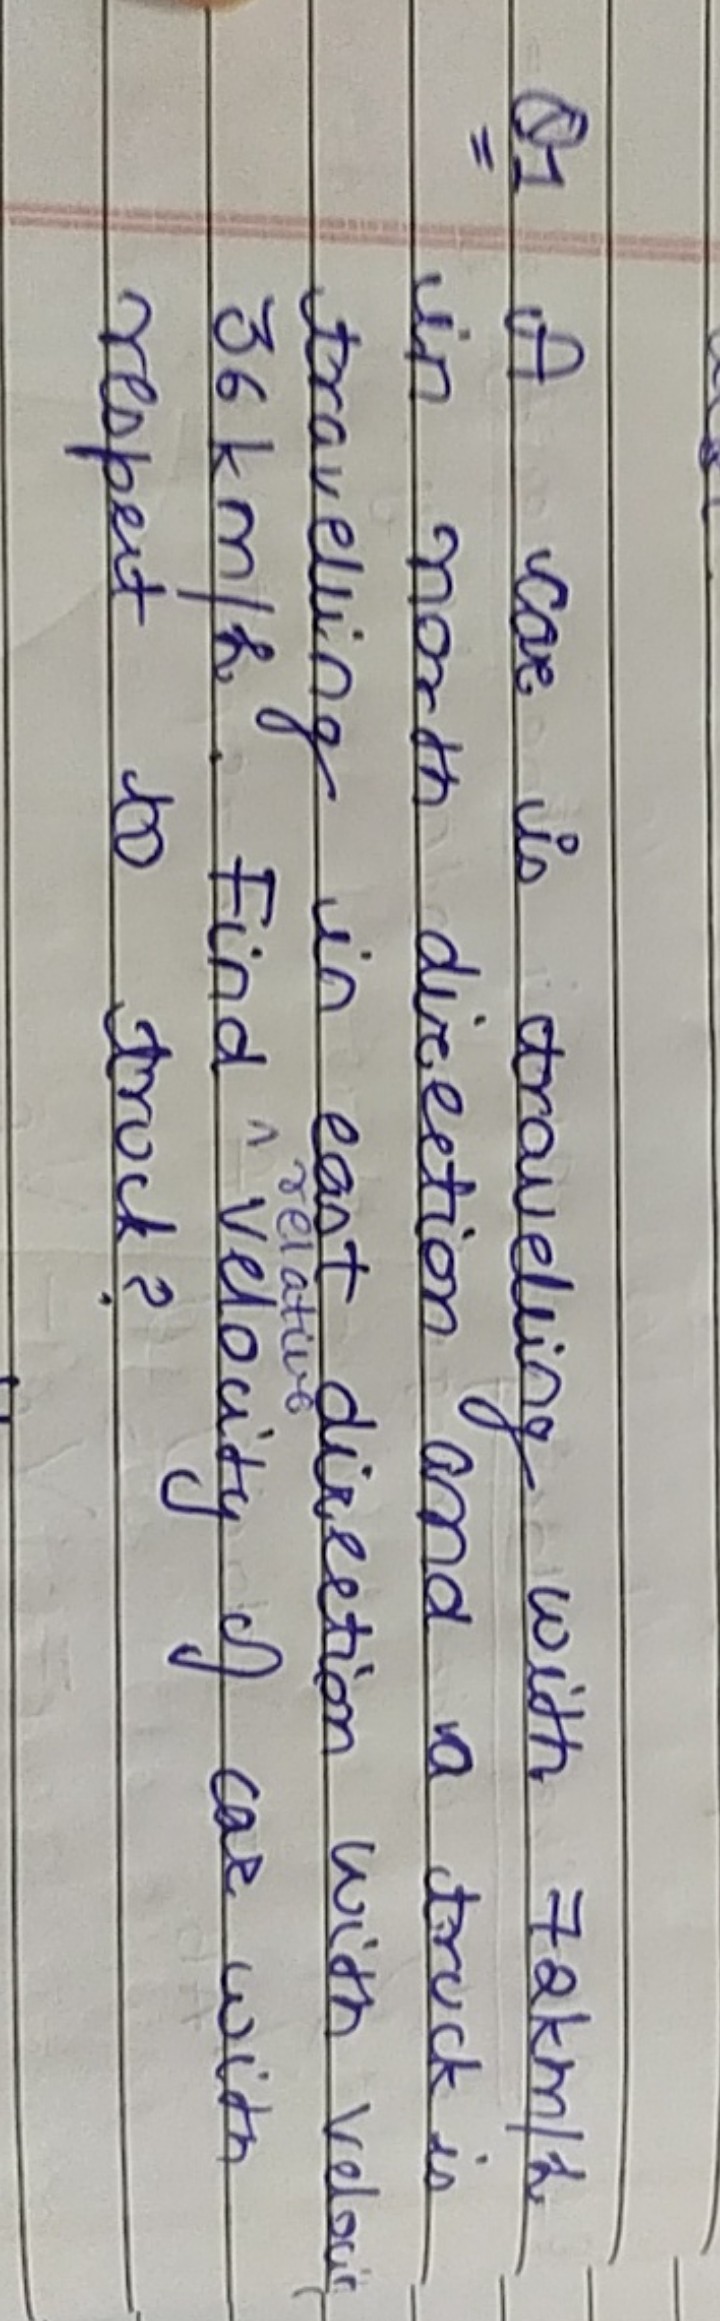 Q1 A car is travelling with 72km/h
in north direction and a truck is
travelling in east direction with veloci
relative
36 km/h. Find ^ velocity of car with
respect to truck?